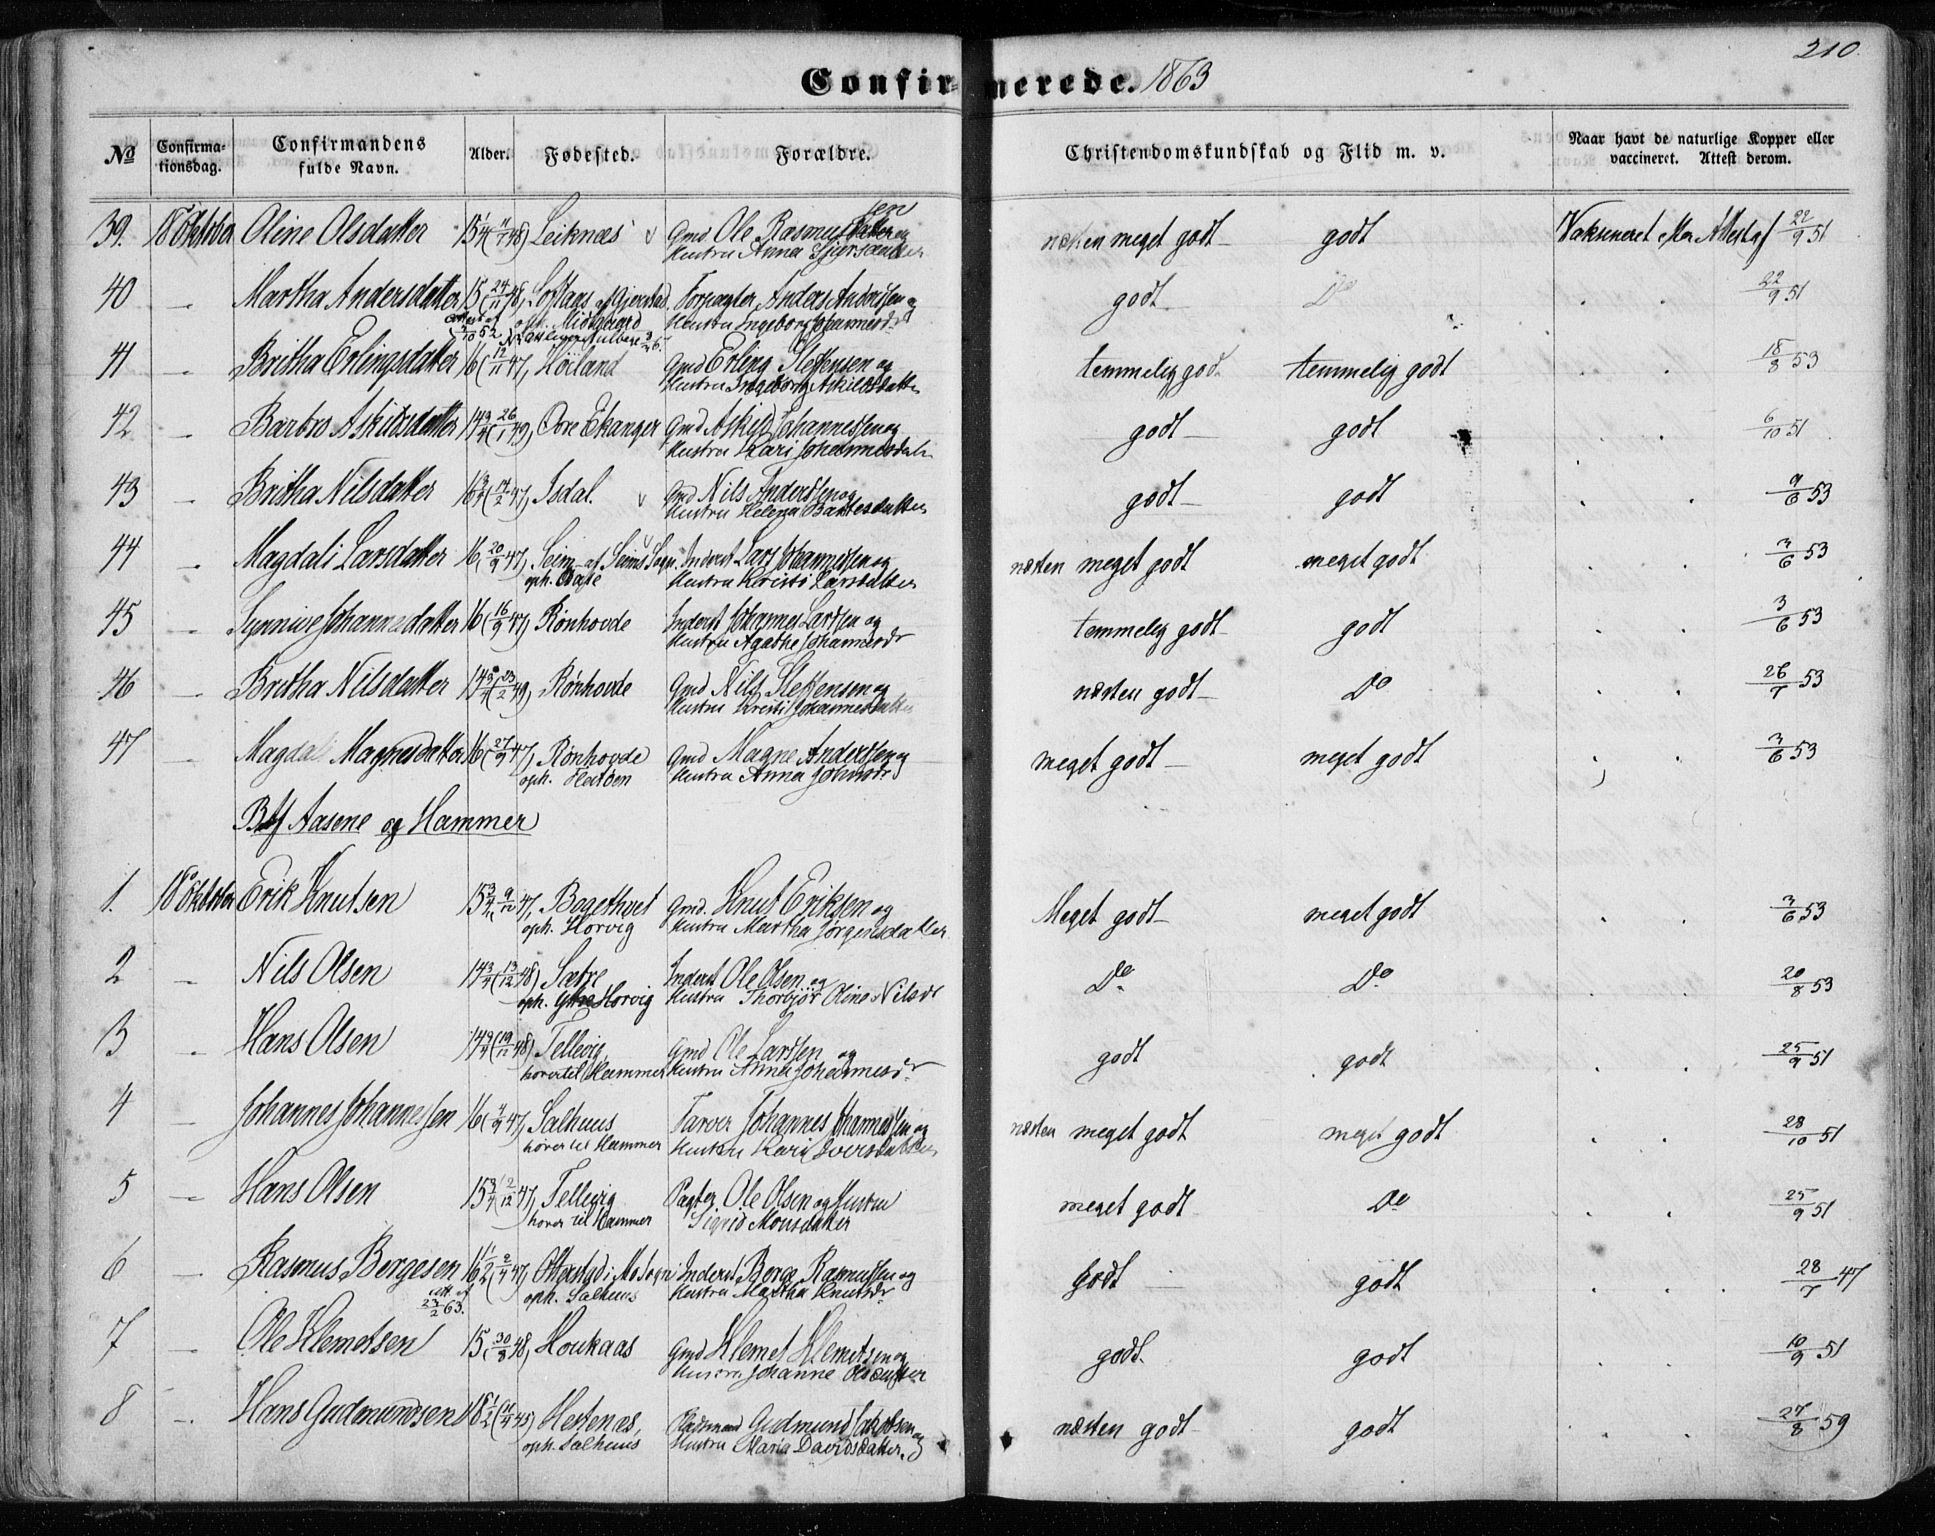 210.
Confirmerede. 1863
No
Confirmationsdag.
Confirmandens fulde Navn.
Alder.
Fødested.
Forældre.
Christendomskundskab og Flid m. v.
Naar havt de naturlige Kopper eller vaccineret. Attest derom.
39. 18 Oktober Oline Olsdatter 15 1/4 (4/7 48) Leiknæs Gmd Ole Rasmussen og næsten meget godt godt Vakcineret 22/9 51
Hustru Anna
40 — Martha Andersdatter 15 (24/11 48) Loftaas af Gjerstad Forpagter Anders Anderssen og godt Do 22/9 51
oph. Midtgaard Hustru Ingeborg Johannesdr
41 — Britha Erlingsdatter 16 (12/11 47) Høiland Gmd Erling Steffensen og temmelig godt temmelig godt 18/8 53
Hustru Ingeborg Askildsdatter
42 — Barbro Askildsdatter 14 3/4 (26/1 49) Øvre Ekanger Gmd Askild Johannessen og godt godt 6/10 51
Hustru Kari Johannesdatter
43 — Britha Nilsdatter 16 3/4 (14/2 47) Isdal. Gmd Nils Anderssen og godt godt 9/6 53
Hustru Helena
44 — Magdali Larsdatter 16 (20/9 47) Seim af Seims Sogn Inderst Lars Johannessen og næsten meget godt meget godt 3/6 53
oph. Hustru Kristi Larsdatter
45 — Synnive Johannesdatter 16 (16/9 47) Rønhovde Inderst Johannes Larssen og temmelig godt godt 3/6 53
Hustru Agathe Johannesdr
46 — Britha Nilsdatter 14 3/4 (23/2 49) Rønhovde Gmd Nils Steffensen og næsten godt Do 26/7 53
Hustru Kristi Johannesdatter
47 — Magdali Magnesdatter 16 (27/9 47) Rønhovde Gmd Magne Anderssen og meget godt meget godt 3/6 53
oph. Hustru Anna Johnsdr
Af Aasene og Hammer
1. 18 Oktober Erik Knutsen 15 3/4 (9/12 47) Bogesthvet Gmd. Knut Eriksen og Meget godt meget godt 3/6 53
oph. Horvig Hustru Martha Jørgensdatter
2 — Nils Olsen 14 3/4 (13/12 48) Sætre Inderst Ole Olsen og Do Do 20/8 53
oph. Ytre Horvig Hustru Thorbjør Oline Nilsdr
3 — Hans Olsen 14 3/4 (19/12 48) Tellevig, Gmd Ole Larssen og godt godt 25/9 51
hører til Hammer Hustru Anna Johannesdr
4 — Johannes Johannessen 16 (4/9 47) Salhuus Farver Johannes Johannessen og næsten meget godt meget godt 28/10 51
hører til Hammer Hustru Kari Iversdatter
5 — Hans Olsen 15 3/4 (2/12 47) Tellevig Pagter Ole Olsen og Hustru meget godt Do 25/9 51
hører til Hammer Sigrid Monsdatter
6 — Rasmus Bergesen 16 1/2 (2/4 47) Otterstad i Mo Sogn Inderst Berge Rasmussen og godt godt 28/7 47
att. af 23/2 63. oph. Salhuus Hustru Martha Knutsdr
7 — Ole Klemetsen 15 (30/8 48) Houkaas Gmd Klemet Klemetsen og godt. godt 10/9 51
Hustru Johanne Olsdatter
8 — Hans Gudmundsen 18 1/2 (11/4 45) Hestenæs, Gudmund Jakobsen og næsten godt godt 27/8 59
oph. Salhuus Hustru Maria Davidsdatter